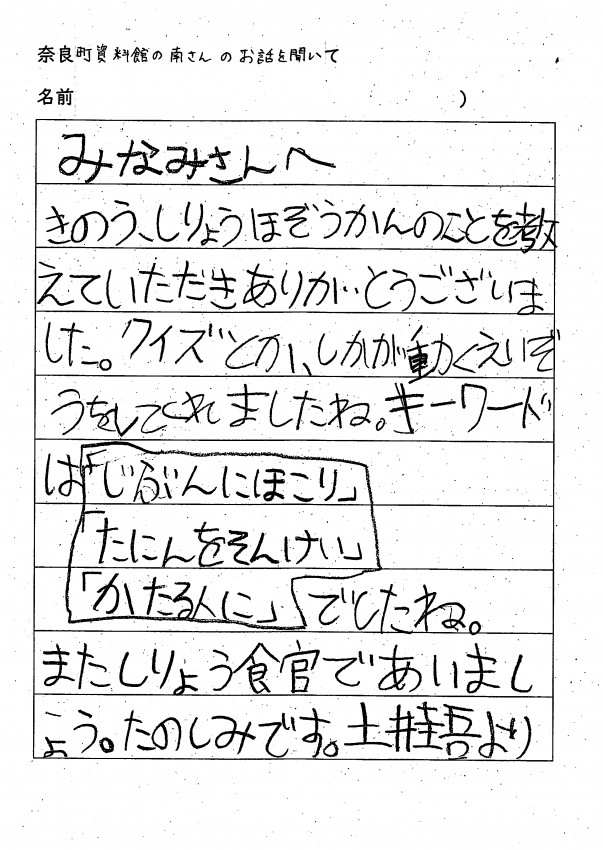 奈良町資料館の南さんのお話を聞いて
名前 )
みなみさんへ
きのう、しりょうほぞうかんのことを教
えていただきありがとうございま
した。クイズとか、しかが動くえいぞ
うをしてくれましたね。キーワード
は「じぶんにほこり」
「たにんをそんけい」
「かたる人に」でしたね。
またしりょう食官であいまし
ょう。たのしみです。土井圭吾より